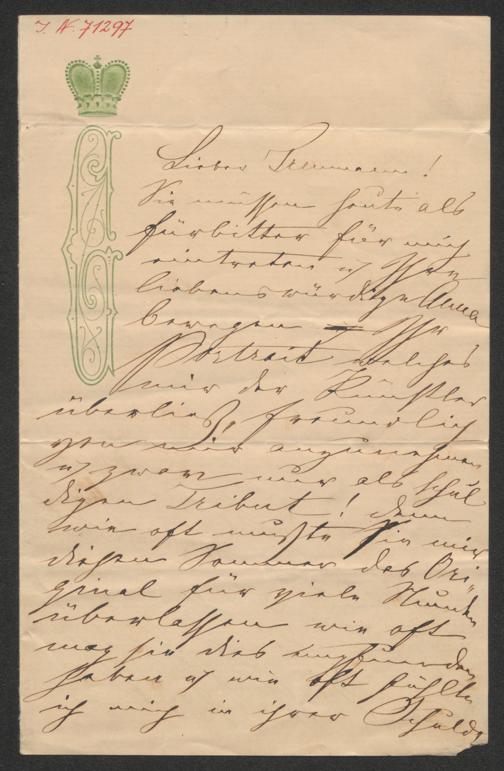 I. N. 71297
Lieber
Sie müssen heute als
Fürbitter für mich
eintreten u Ihre
liebenswürdige Anna
bewegen Ihr
Portrait welches
mir der Künstler
überließ, freundlich
von mir anzunehmen
u zwar nur als schul
digen Tribut! denn
wie oft mußte Sie mir
diesen Sommer das Ori-
ginal für viele Stunden
überlassen wie oft
mag sie dies empfunden
haben u wie oft fühlte
ich mich in ihrer Schuld